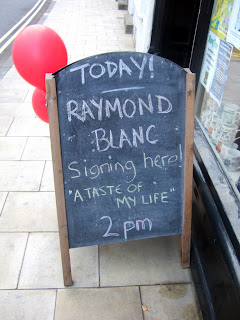 TODAY!
RAYMOND
BLANC
Signing here!
"A TASTE OF
MY LIFE"
2pm